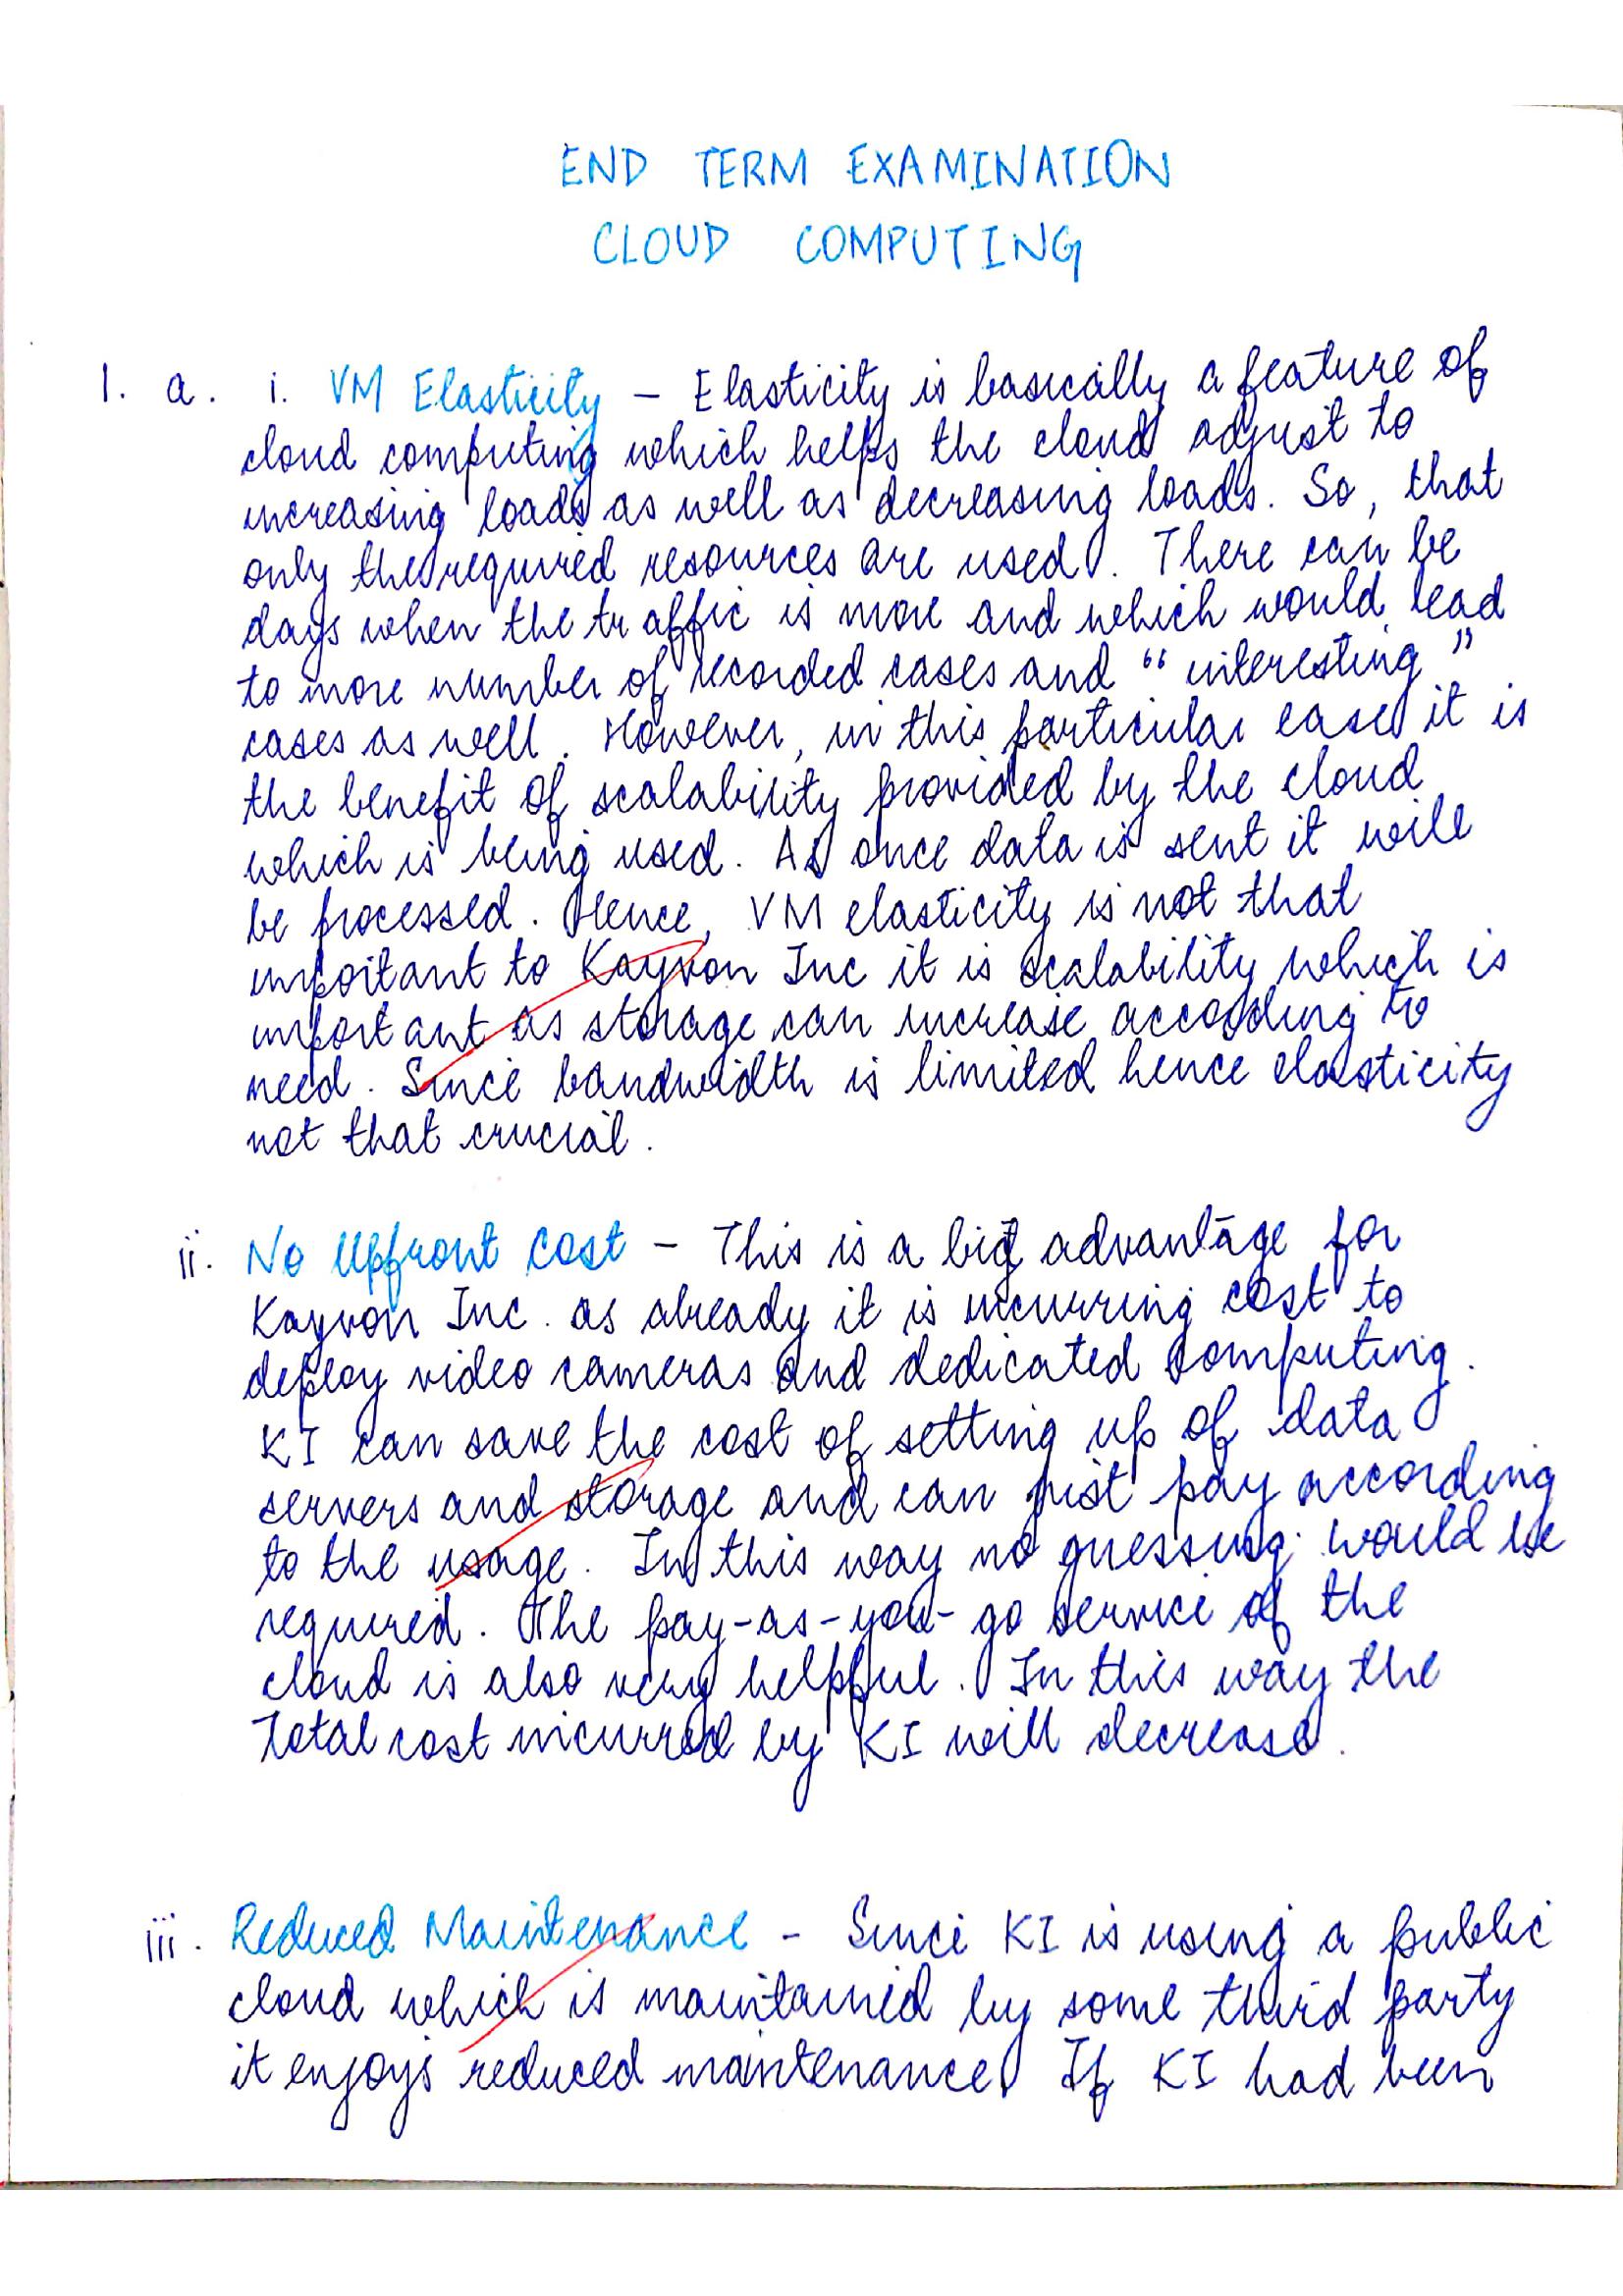 END TERM EXAMINATION
CLOUD COMPUTING
1. a. i. VM Elasticity – Elasticity is basically a feature of
cloud computing which helps the cloud adjust to
increasing loads as well as decreasing loads. So, that
only the required resources are used. There can be
days when the traffic is more and which would lead
to more number of recorded cases and "interesting"
cases as well. However, in this particular case it is
the benefit of scalability provided by the cloud
which is being used. As once data is sent it will
be processed. Hence, VM elasticity is not that
important to Kayvon Inc it is scalability which is
important as storage can increase according to
need. Since bandwidth is limited hence elasticity
not that crucial.
ii. No Upfront Cost – This is a big advantage for
Kayvon Inc. as already it is incurring cost to
deploy video cameras and dedicated computing.
KI can save the cost of setting up of data
servers and storage and can just pay according
to the usage. In this way no guessing would be
required. The pay-as-you-go service of the
cloud is also very helpful. In this way the
total cost incurred by KI will decrease.
iii. Reduced Maintenance - Since KI is using a public
cloud which is maintained by some third party
it enjoys reduced maintenance. If KI had been